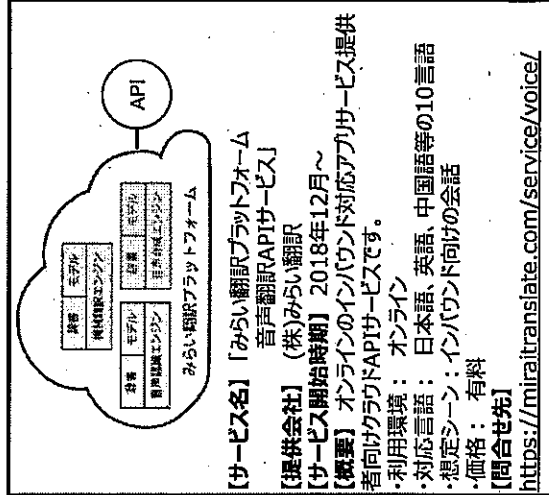 辞書 モデル
機械翻訳エンジン
辞書 モデル
音声認識エンジン
辞書 モデル
音声合成エンジン
みらい翻訳プラットフォーム
API
【サービス名】「みらい翻訳プラットフォーム
音声翻訳APIサービス」
【提供会社】 (株)みらい翻訳
【サービス開始時期】 2018年12月～
【概要】 オンラインのインバウンド対応アプリサービス提供
者向けクラウドAPIサービスです。
・利用環境： オンライン
・対応言語： 日本語、英語、中国語等の10言語
・想定シーン：インバウンド向けの会話
・価格： 有料
【問合せ先】
https://miraitranslate.com/service/voice/